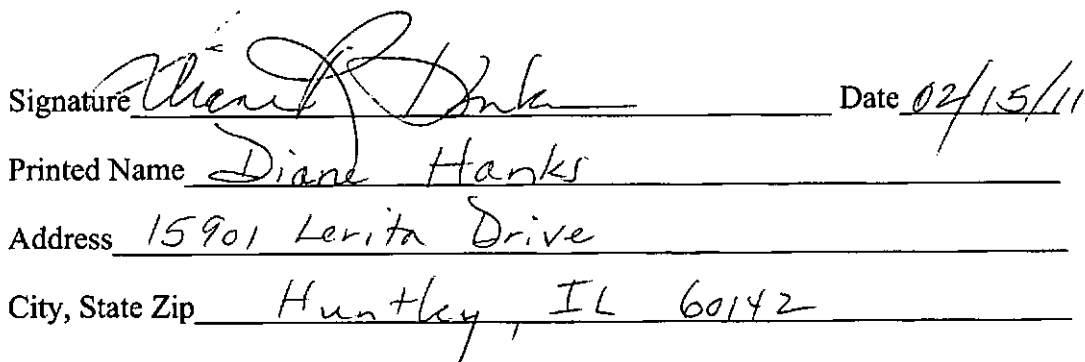 Signature Diane Hanks Date 02/15/11
Printed Name Diane Hanks
Address 15901 Lerita Drive
City, State Zip Huntley, IL 60142